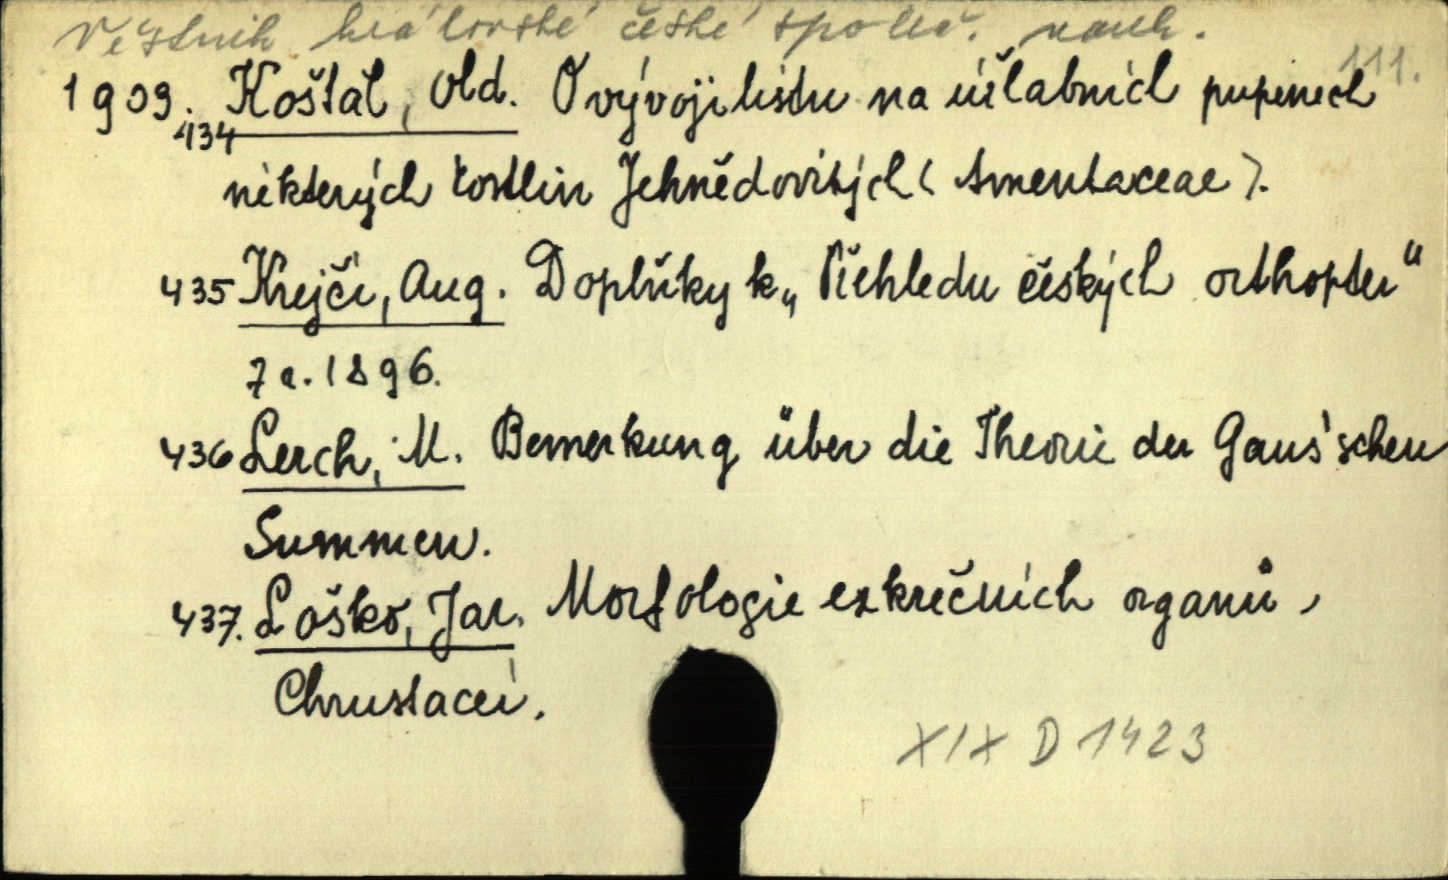 Věstník královské české společ. nauk.
111.
1909. Košťál, Old. O vývoji listu na úžlabních pupenech
434
některých rostlin Jehnědovitých (Amentaceae).
435 Krejčí, Aug. Doplňky k „Přehledu českých orthopter"
z r. 1896.
436 Lerch, M. Bemerkung über die Theorie der Gaus'schen
Summen.
437. Loško, Jar. Morfologie exkrečních organů,
Chrustaceí.
XIX D 1423